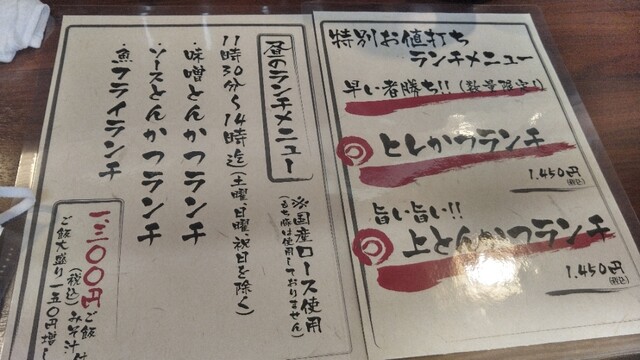 昼のランチメニュー
11時30分～14時迄(土曜、日曜、祝日を除く)
※国産ロース使用
(もち豚は使用しておりません)
味噌とんかつランチ
ソースとんかつランチ
魚フライランチ
ご飯
みそ汁付
(税込)
ご飯大盛り一五〇円増し
特別お値打ち
ランチメニュー
早い者勝ち!!(数量限定!)
ヒレかつランチ
1.450円
(税込)
旨い旨い!!
上とんかつランチ
1.450円
(税込)